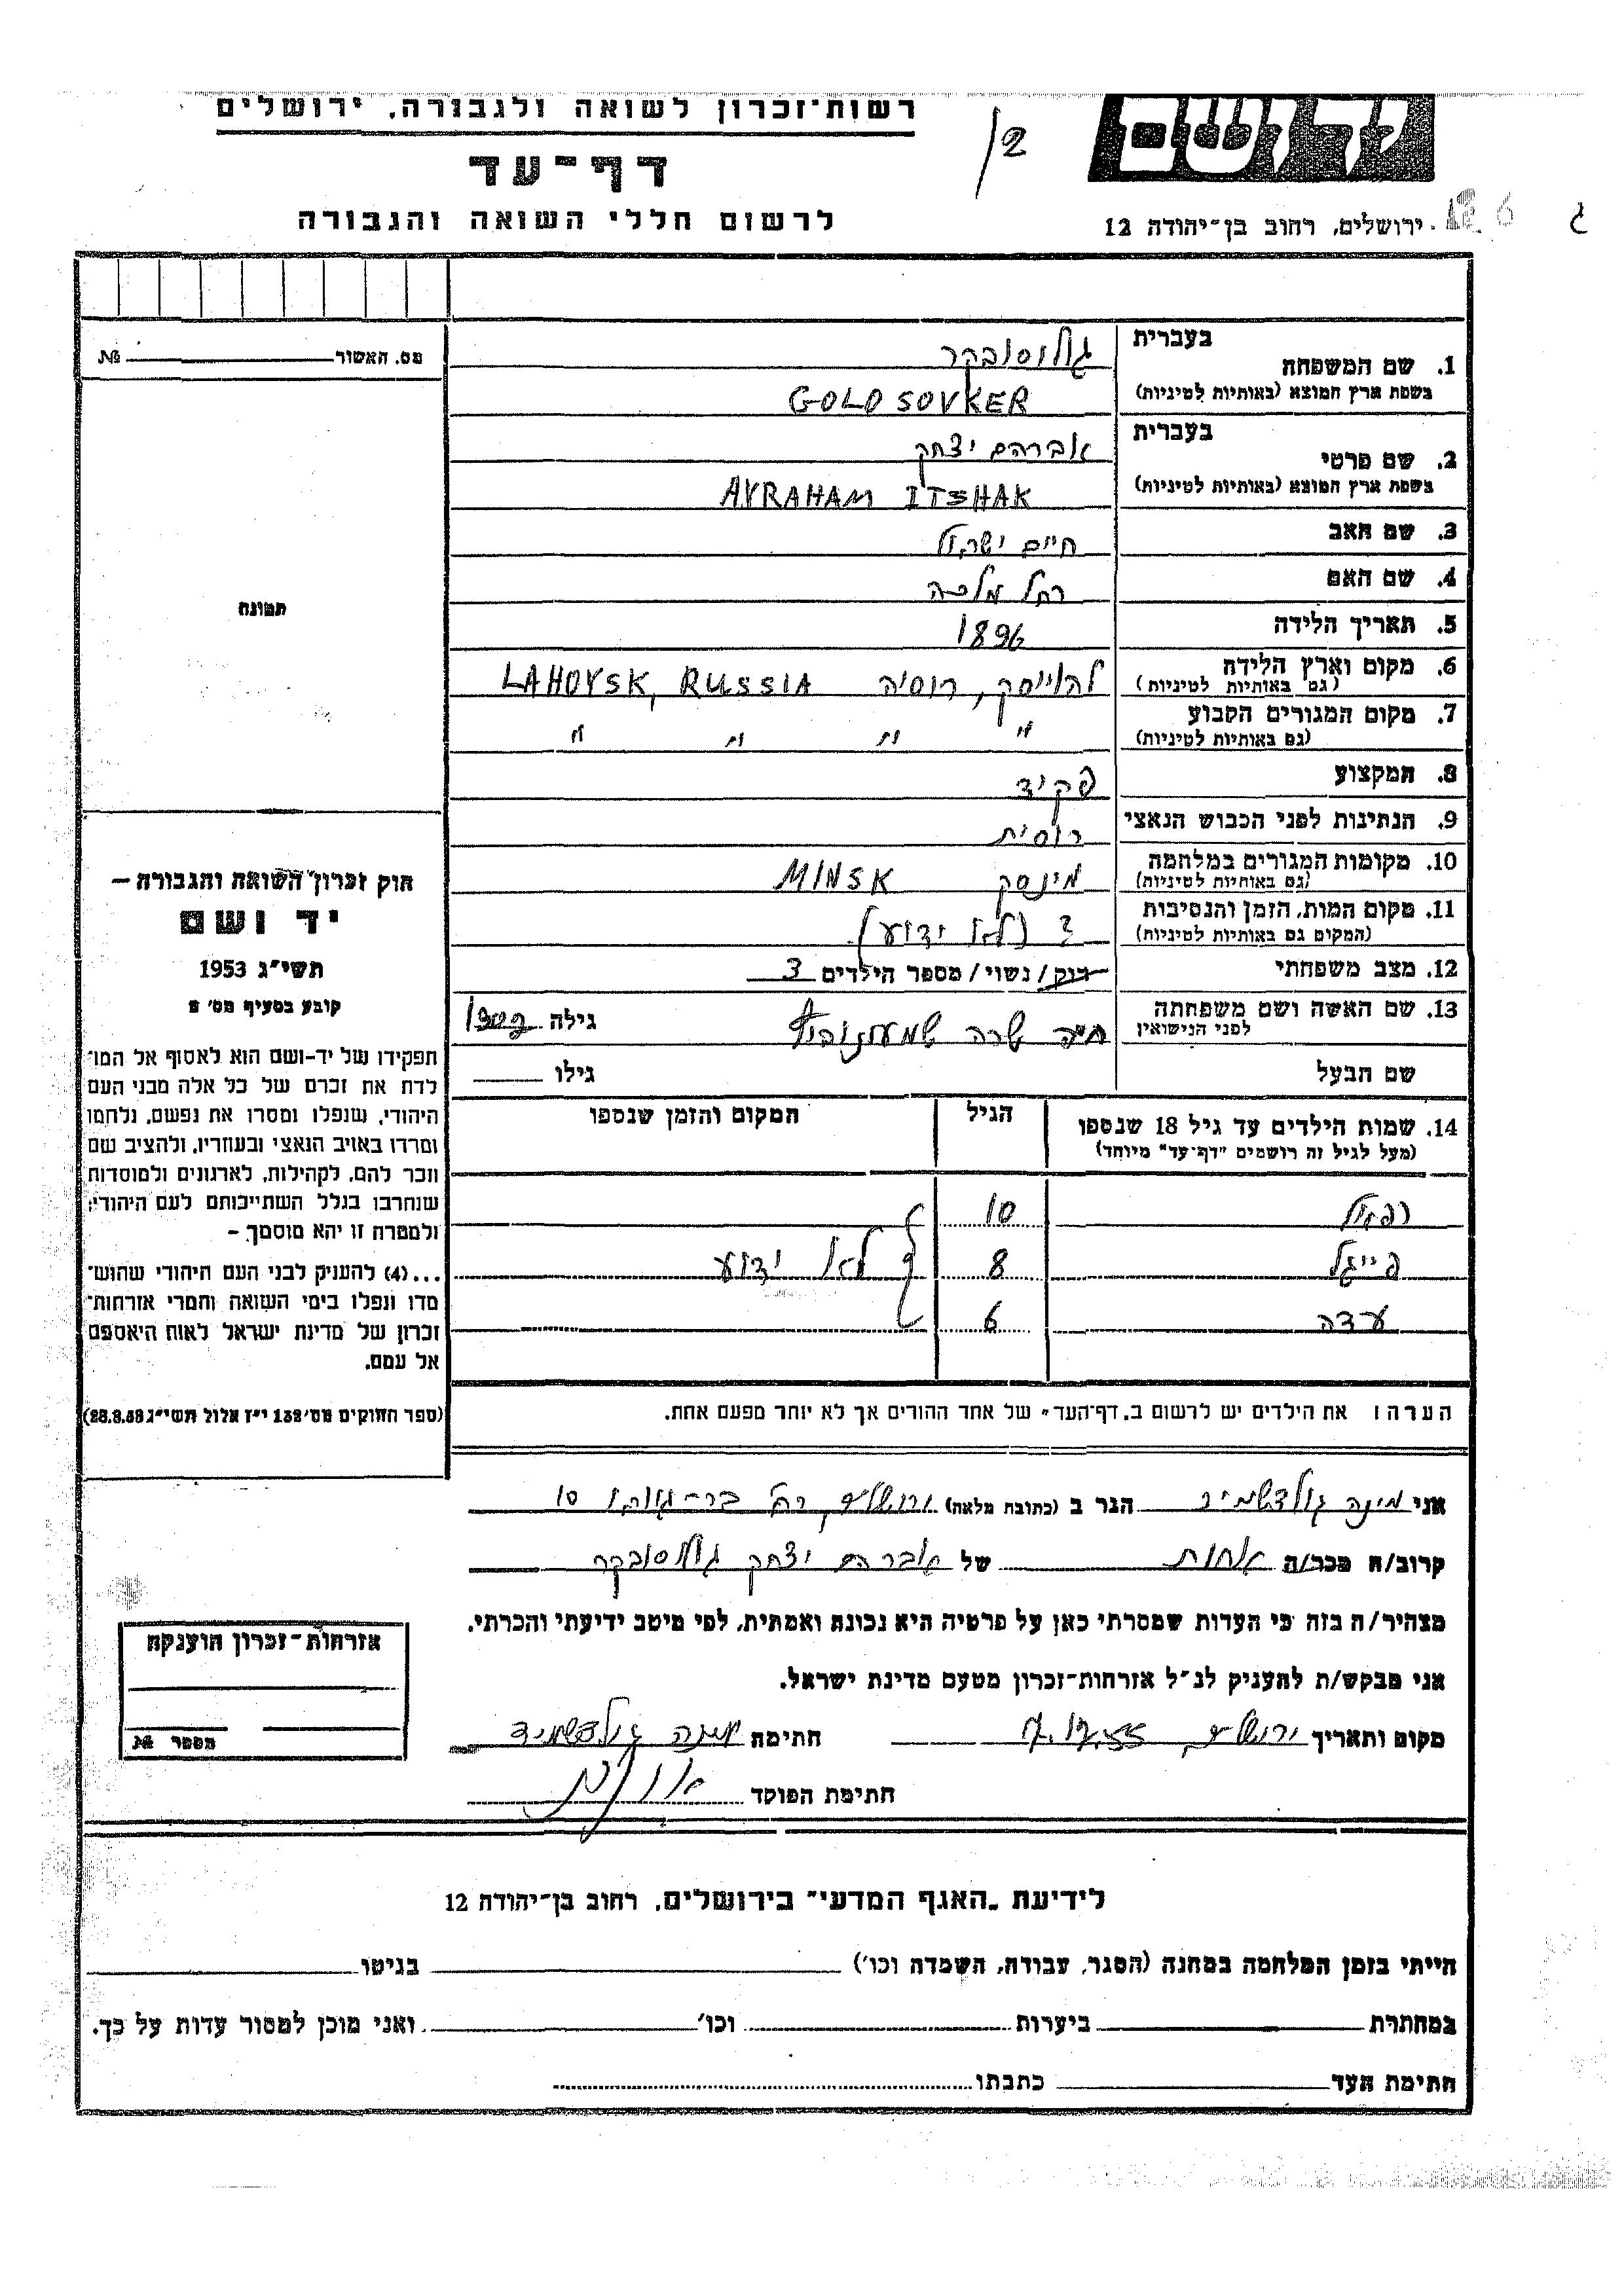 רשות־זכרון לשואה ולגבורה, ירושלים
דף־עד
לרשום חללי השואה והגבורה
יד ושם
ירושלים, רחוב בן־יהודה 12
12
ג
מס. האשור № 
1. שם המשפחה בעברית גולוסובקר
בשפת ארץ המוצא (באותיות לטיניות) GOLOSOVKER
2. שם פרטי בעברית אברהם יצחק
בשפת ארץ המוצא (באותיות לטיניות) AVRAHAM ITSHAK
3. שם האב חיים ישראל
4. שם האם רחל מלכה
5. תאריך הלידה 1896
6. מקום וארץ הלידה (גם באותיות לטיניות) להוייסק, רוסיה LAHOYSK, RUSSIA
7. מקום המגורים הקבוע (גם באותיות לטיניות) " " " "
8. המקצוע פקיד
9. הנתינות לפני הכבוש הנאצי רוסית
10. מקומות המגורים במלחמה (גם באותיות לטיניות) מינסק MINSK
11. מקום המות, הזמן והנסיבות (המקום גם באותיות לטיניות) ? (לא ידוע)
12. מצב משפחתי רוק / נשוי / מספר הילדים 3
13. שם האשה ושם משפחתה לפני הנישואין חיה שרה גילה
שם הבעל גילו
14. שמות הילדים עד גיל 18 שנספו הגיל המקום והזמן שנספו
(מעל לגיל זה רושמים "דף־עד" מיוחד)
רפאל 10
פייגל 8 לא ידוע
עדה 6
הערה: את הילדים יש לרשום ב„דף־העד" של אחד ההורים אך לא יותר מפעם אחת.
תמונה
חוק זכרון השואה והגבורה –
יד ושם
תשי״ג 1953
קובע בסעיף מס׳ 2
תפקידו של יד-ושם הוא לאסוף אל המו־
לדת את זכרם של כל אלה מבני העם
היהודי, שנפלו ומסרו את נפשם, נלחמו
ומרדו באויב הנאצי ובעוזריו, ולהציב שם
וזכר להם, לקהילות, לארגונים ולמוסדות
שנחרבו בגלל השתייכותם לעם היהודי;
ולמטרה זו יהא מוסמך –
...(4) להעניק לבני העם היהודי שהוש־
מדו ונפלו בימי השואה והמרי אזרחות־
זכרון של מדינת ישראל לאות היאספם
אל עמם.
(ספר החוקים מס׳ 132 י״ז אלול תשי״ג 28.8.53)
אני מינה גולדשמיד הגר ב (כתובת מלאה) ירושלים, רח׳ בר-גיורא 10
קרוב/ה מכר/ה אחות של אברהם יצחק גולוסובקר
מצהיר/ה בזה כי העדות שמסרתי כאן על פרטיה היא נכונה ואמתית, לפי מיטב ידיעתי והכרתי.
אני מבקש/ת להעניק לנ״ל אזרחות-זכרון מטעם מדינת ישראל.
מקום ותאריך ירושלים, 7.12.55 חתימה מינה גולדשמיד
חתימת הפוקד
אזרחות-זכרון הוענקה
מספר №
לידיעת „האגף המדעי" בירושלים, רחוב בן־יהודה 12
הייתי בזמן המלחמה במחנה (הסגר, עבודה, השמדה וכו׳) בגיטו
במחתרת ביערות וכו׳ ואני מוכן למסור עדות על כך.
חתימת העד כתבתו